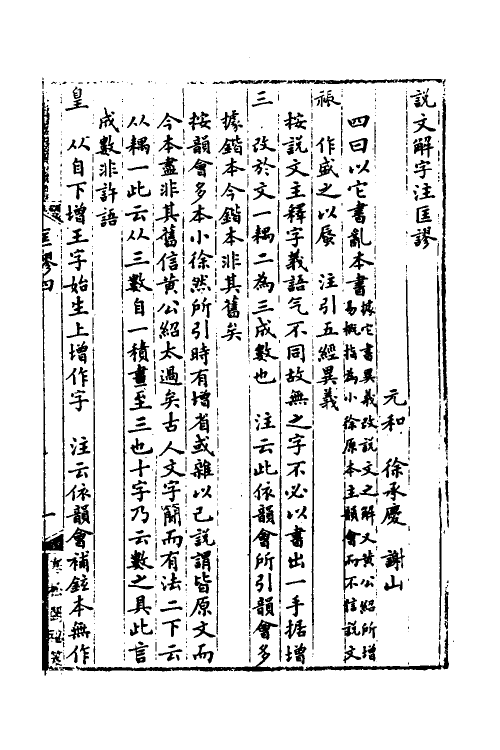 說文解字注匡謬
元和 徐承慶 謝山
四曰以它書亂本書據它書異義改說文之解又黃公紹所增
易概指為小徐原本主韻會而不信說文
祳 作盛之以蜃 注引五經異義
按說文主釋字義語气不同故無之字不必以書出一手据增
三 改於文一耦二為三成數也 注云此依韻會所引韻會多
據鍇本今鍇本非其舊矣
按韻會多本小徐然所引時有增省或雜以己說謂皆原文而
今本盡非其舊信黃公紹太過矣古人文字簡而有法二下云
从耦一此云从三數自一積畫至三也十字乃云數之具此言
成數非許語
皇 从自下增王字始生上增作字 注云依韻會補鉉本無作
匡謬四
一